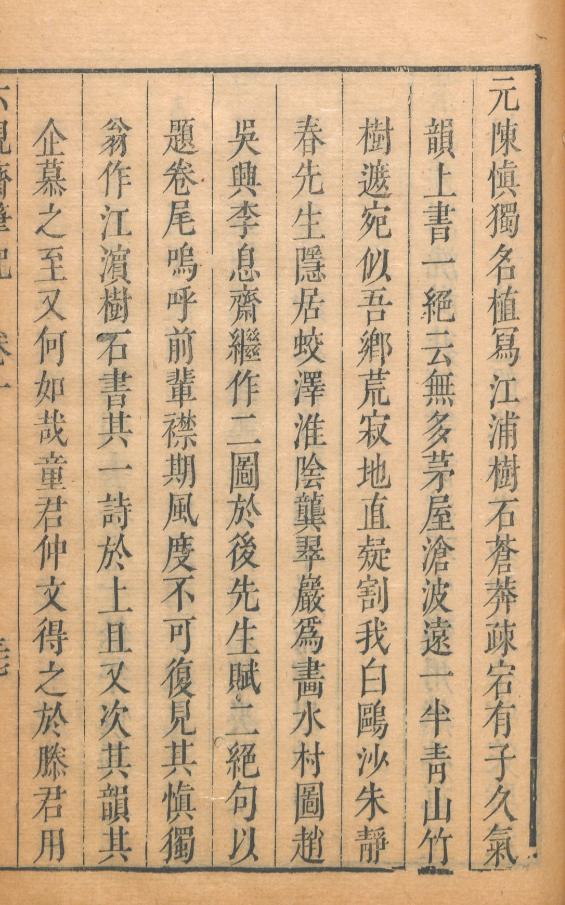 元陳慎獨名植冩江浦樹石蒼莽疎宕有子久氣
韻上書一絕云無多茅屋滄波遠一半靑山竹
樹遮宛似吾鄉荒寂地直疑割我白鷗沙朱靜
春先生隱居蛟澤淮陰龔翠巖爲畵水村圖趙
吳興李息齋繼作二圖於後先生賦二絕句以
題卷尾嗚呼前輩襟期風度不可復見其愼獨
翁作江濵樹石書其一詩於上且又次其韻其
企慕之至又何如哉童君仲文得之於滕君用
六硯齋筆記 卷一